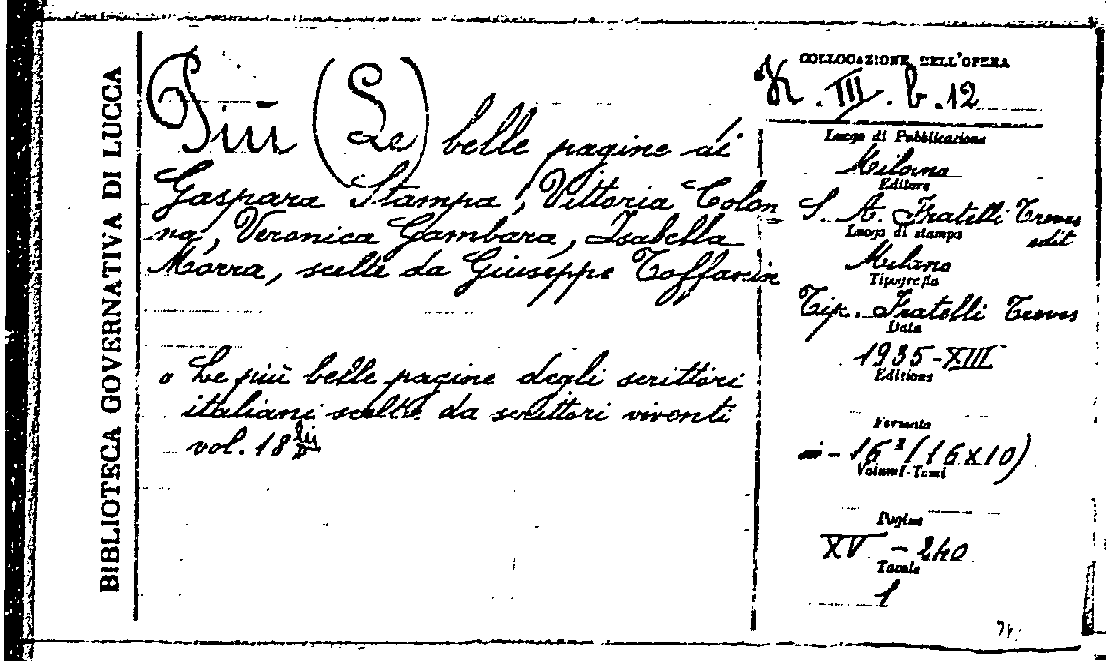 BIBLIOTECA GOVERNATIVA DI LUCCA
Più (Le) belle pagine di
Gaspara Stampa, Vittoria Colon
na, Veronica Gambara, Isabella
Morra, scelte da Giuseppe Toffanin
o Le più belle pagine degli scrittori
italiani scelte da scrittori viventi
vol. 18
COLLOCAZIONE DELL'OPERA
K. III. b. 12
Luogo di Pubblicazione
Milano
Editore
S. A. Fratelli Treves
edit
Luogo di stampa
Milano
Tipografia
Tip. Fratelli Treves
Data
1935-XIII
Edizione
Formato
in-16° (16x10)
Volumi-Tomi
Pagine
XV - 240
Tavole
1